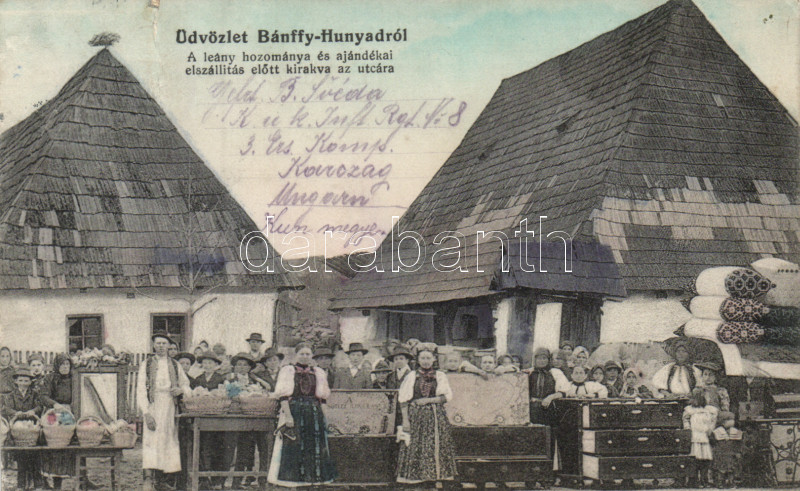 Üdvözlet Bánffy-Hunyadról
A leány hozománya és ajándékai
elszállítás előtt kirakva az utcára
Feld. B. Svéda
K. u. k. Inf. Rgt. N. 8
3. Ers. Komp.
Karczag
Ungarn
Kun megye
darabanth